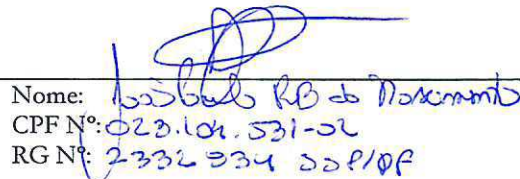 Nome: João Paulo RB do Nascimento
CPF Nº: 023.101.531-02
RG Nº: 2332934 SSP/DF